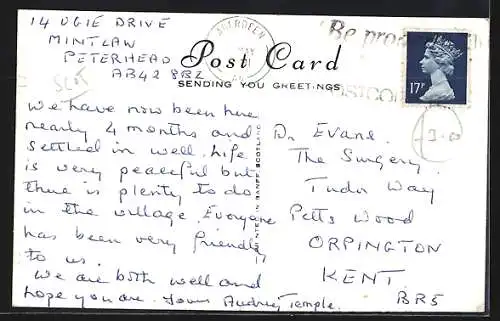 14 UGIE DRIVE
MINTLAW
PETERHEAD
AB42 8BZ
ABERDEEN
MAY
"Be pro
Post Card
SENDING YOU GREETINGS
17P
We have now been here
nearly 4 months and
settled in well. Life
is very peaceful but
there is plenty to do
in the village. Everyone
has been very friendly
to us.
We are both well and
hope you are. Yours Audrey Temple.
BANFF, SCOTLAND
Dr Evans.
The Surgery
Tudor Way
Petts Wood
ORPINGTON
KENT.
BR5